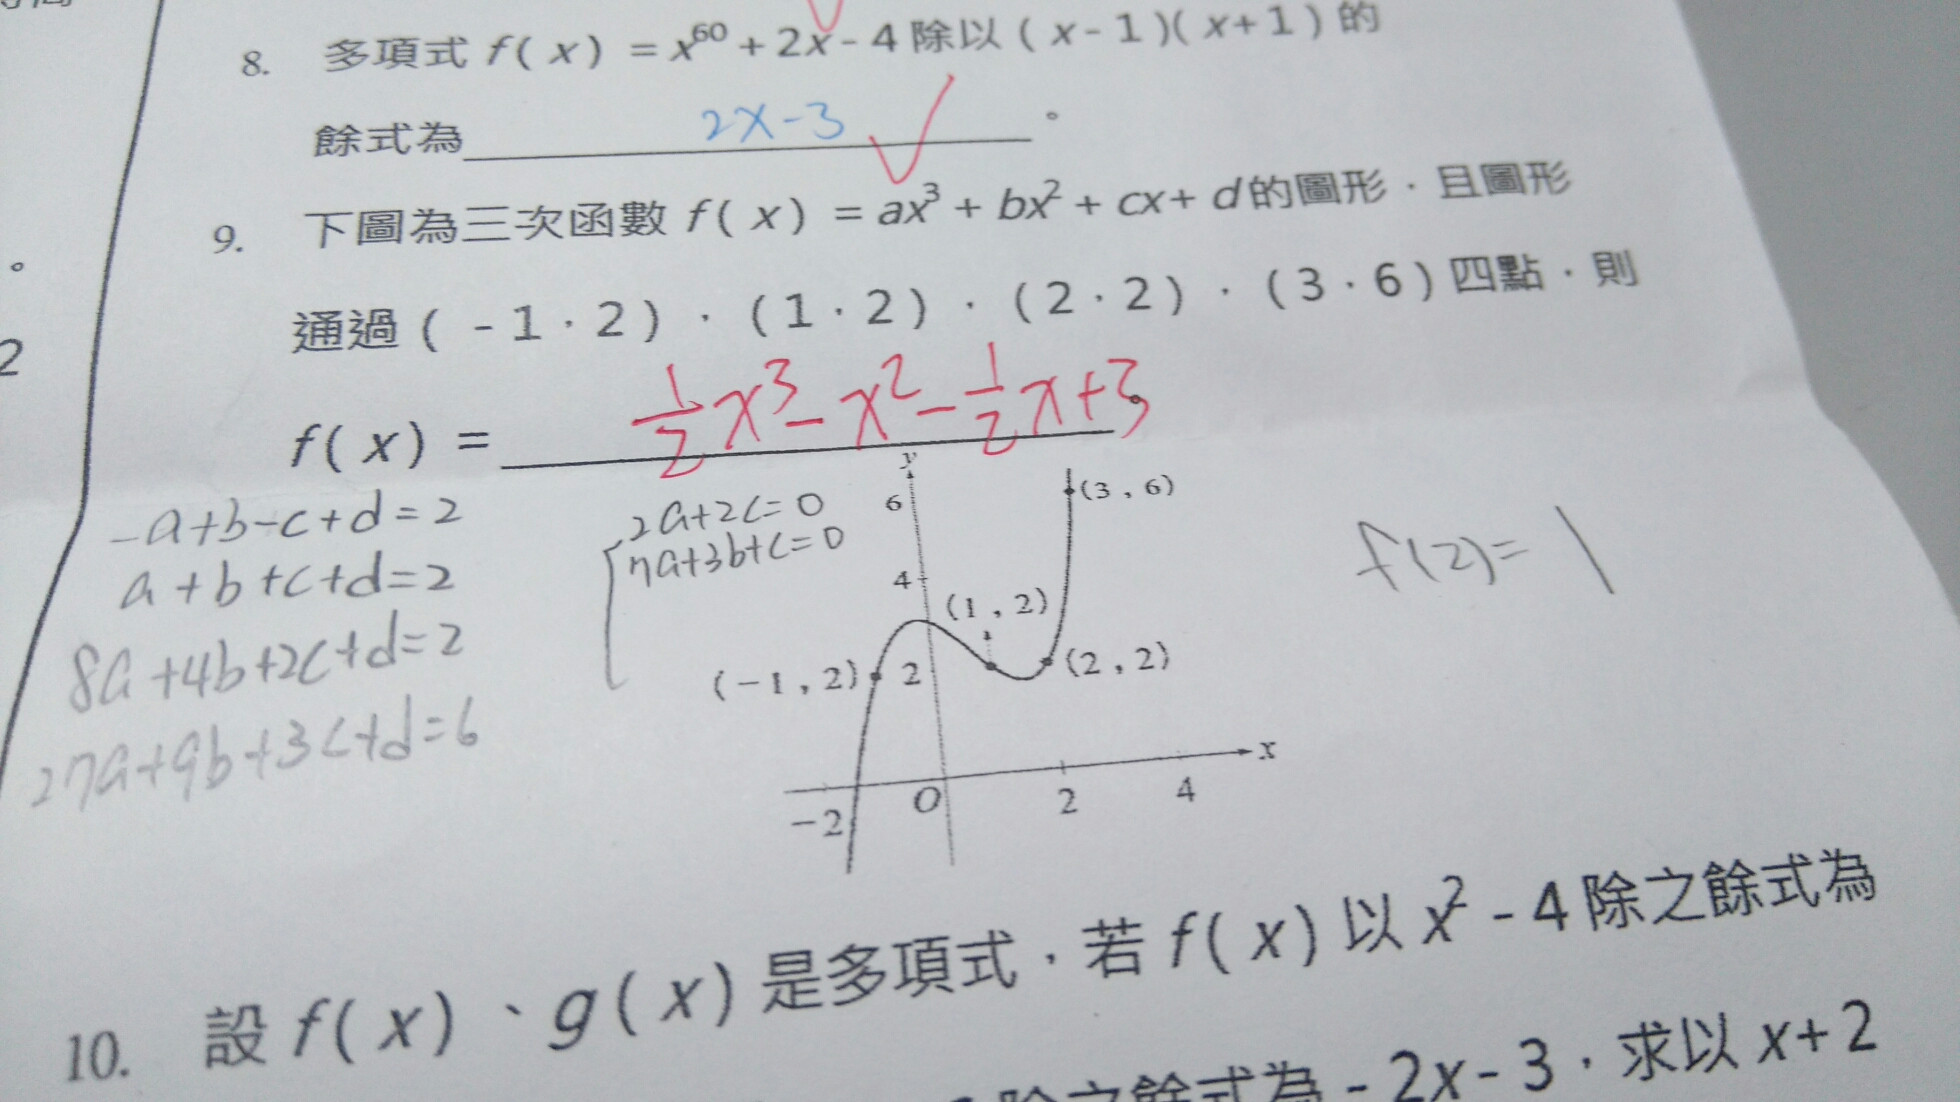 8. 多項式 f(x) = x⁶⁰ + 2x - 4 除以 (x-1)(x+1) 的
餘式為 2x-3 。
9. 下圖為三次函數 f(x) = ax³ + bx² + cx + d 的圖形,且圖形
通過 (-1,2)、(1,2)、(2,2)、(3,6) 四點,則
f(x) = ½x³ - x² - ½x + 3 。
-a+b-c+d=2
a+b+c+d=2
8a+4b+2c+d=2
27a+9b+3c+d=6
2a+2c=0
7a+3b+c=0
y
6
(3,6)
4
(1,2)
(-1,2)
2
(2,2)
x
-2
O
2
4
f(2)=1
10. 設 f(x)、g(x) 是多項式,若 f(x) 以 x² - 4 除之餘式為
除之餘式為 -2x-3,求以 x+2
。
2